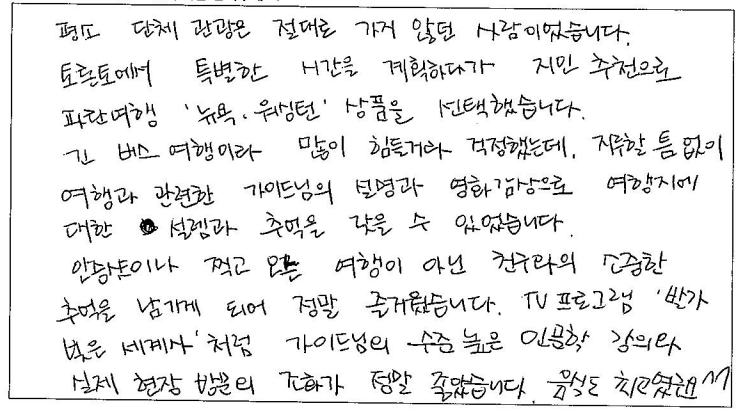 평소 단체 관광은 절대로 가지 않던 사람이었습니다.
토론토에서 특별한 시간을 계획하다가 지인 추천으로
파란여행 '뉴욕.워싱턴' 상품을 선택했습니다.
긴 버스 여행이라 많이 힘들거라 걱정했는데, 지루할 틈 없이
여행과 관련한 가이드님의 설명과 영화감상으로 여행지에
대한 설렘과 추억을 갖을 수 있었습니다.
인증샷이나 찍고 오는 여행이 아닌 친구와의 소중한
추억을 남기게 되어 정말 즐거웠습니다. TV 프로그램 '벌거
벗은 세계사'처럼 가이드님의 수준 높은 인문학 강의와
실제 현장 방문의 조화가 정말 좋았습니다. 음식도 최고였어요^^